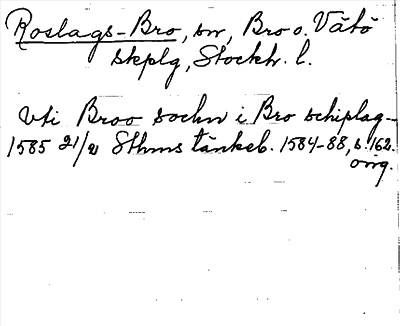 Roslags-Bro, sn, Bro o. Vätö
skplg, Stockh. l.
vti Broo sochn i Bro schiplag-
1585 21/2 Sthms tänkeb. 1584-88, s. 162.
orig.